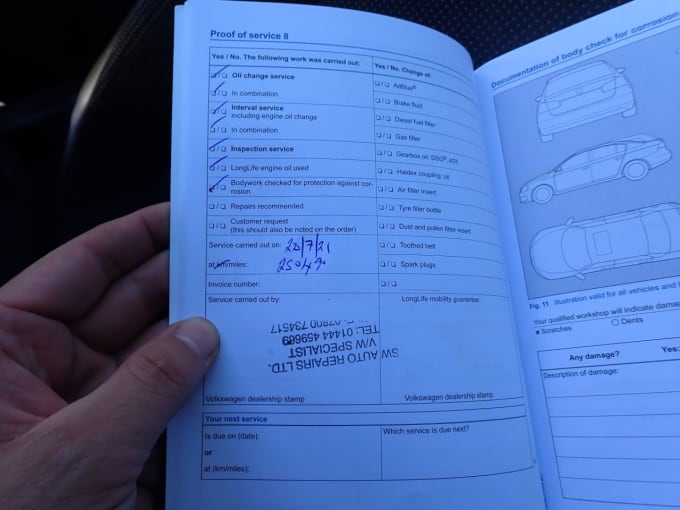 Proof of service 8
Yes / No. The following work was carried out:
Oil change service
In combination
Interval service
including engine oil change
In combination
Inspection service
LongLife engine oil used
Bodywork checked for protection against cor-
rosion
Repairs recommended
Customer request
(this should also be noted on the order)
Service carried out on: 20/7/21
at km/miles:
Invoice number:
Service carried out by:
SW AUTO REPAIRS LTD.
VW SPECIALIST
TEL: 01444 459689
07800 734517
Volkswagen dealership stamp
Yes / No. Change of:
AdBlue®
Brake fluid
Diesel fuel filter
Gas filter
Gearbox oil: DSG®, 4X4
Haldex coupling: oil
Air filter insert
Tyre filler bottle
Dust and pollen filter insert
Toothed belt
Spark plugs
LongLife mobility guarantee
Volkswagen dealership stamp
Your next service
Is due on (date):
or
at (km/miles):
Which service is due next?
Documentation of body check for corrosion
Fig. 11 Illustration valid for all vehicles and
Your qualified workshop will indicate
x Scratches
O Dents
Any damage?
Yes:
Description of damage: